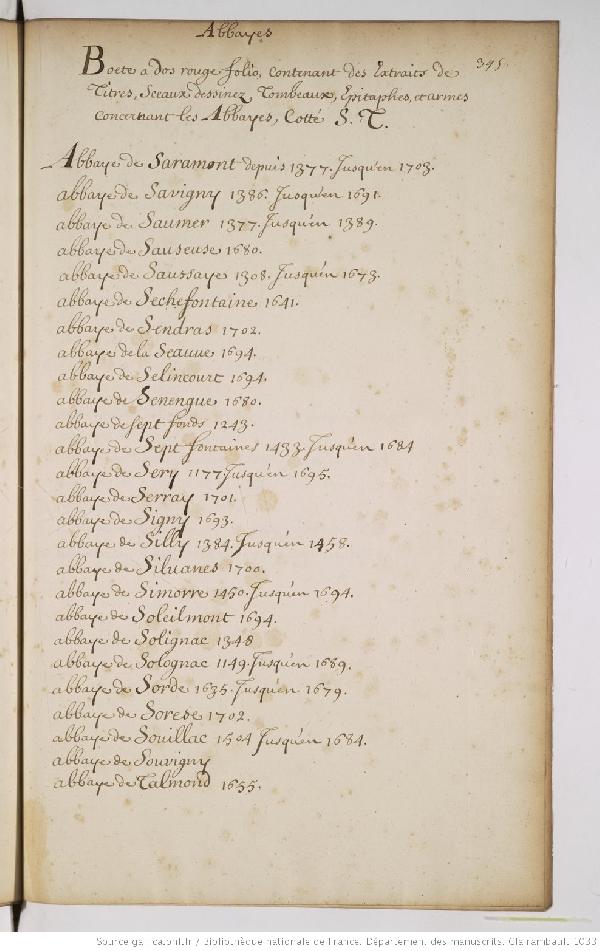 Abbayes
345.
Boete a dos rouge folio, contenant des Extraits de
Titres, Sceaux dessinez, Tombeaux, Epitaphes, et armes
concernant les Abbayes, Cotté S. T.
Abbaye de Saramont depuis 1377. Jusqu'en 1703.
abbaye de Savigny 1386. Jusqu'en 1691.
abbaye de Saumer 1377. Jusqu'en 1389.
abbaye de Sauseuse 1680.
abbaye de Saussaye 1308. Jusqu'en 1673.
abbaye de Sechefontaine 1641.
abbaye de Sendras 1702.
abbaye de la Seauue 1694.
abbaye de Selincourt 1694.
abbaye de Senengue 1680.
abbaye de sept fonds 1243.
abbaye de Sept fontaines 1433. Jusqu'en 1684
abbaye de Sery 1177 Jusqu'en 1695.
abbaye de Serray 1701.
abbaye de Signy 1693.
abbaye de Silly 1384. Jusqu'en 1458.
abbaye de Siluanes 1700.
abbaye de Simorre 1450. Jusqu'en 1694.
abbaye de Soleilmont 1694.
abbaye de Solignac 1348
abbaye de Solognac 1149. Jusqu'en 1689.
abbaye de Sorde 1635. Jusqu'en 1679.
abbaye de Sorese 1702.
abbaye de Souillac 1504 Jusqu'en 1684.
abbaye de Souvigny
abbaye de Talmond 1655.
Source gallica.bnf.fr / Bibliothèque nationale de France. Département des manuscrits. Clairambault 1033